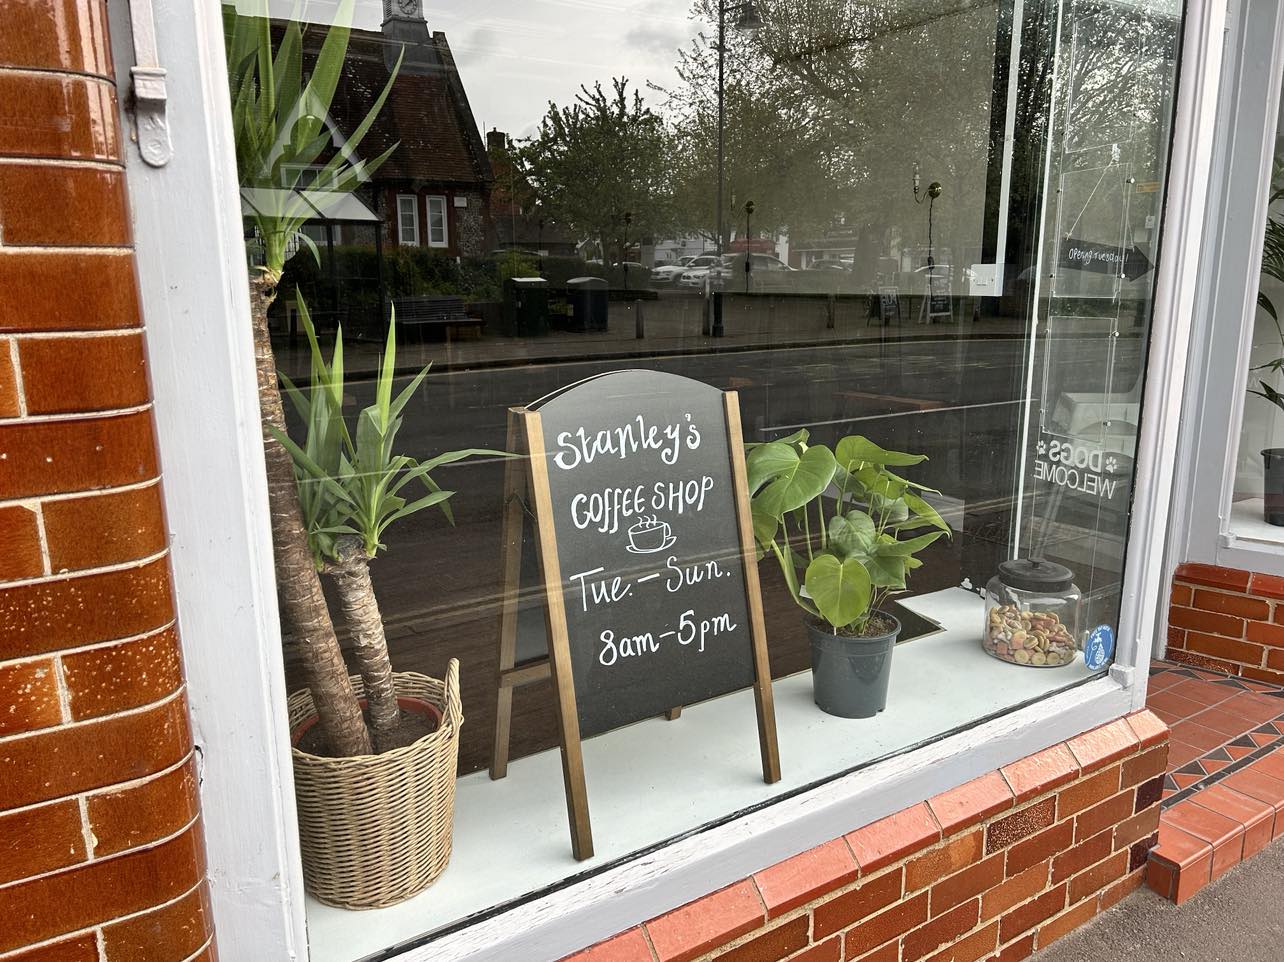 Stanley's
COFFEE SHOP
Tue.-Sun.
8am-5pm
DOGS
WELCOME